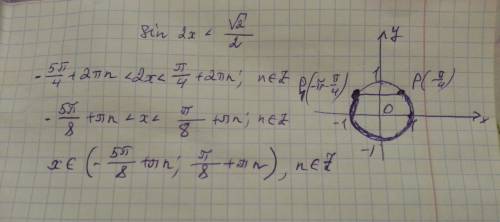 sin 2x < √2/2
-5π/4 + 2πn < 2x < π/4 + 2πn; n∈Z
-5π/8 + πn < x < π/8 + πn; n∈Z
x∈(-5π/8 + πn; π/8 + πn), n∈Z
y
1
P(-π-π/4)
P(π/4)
0
-1
1
x
-1